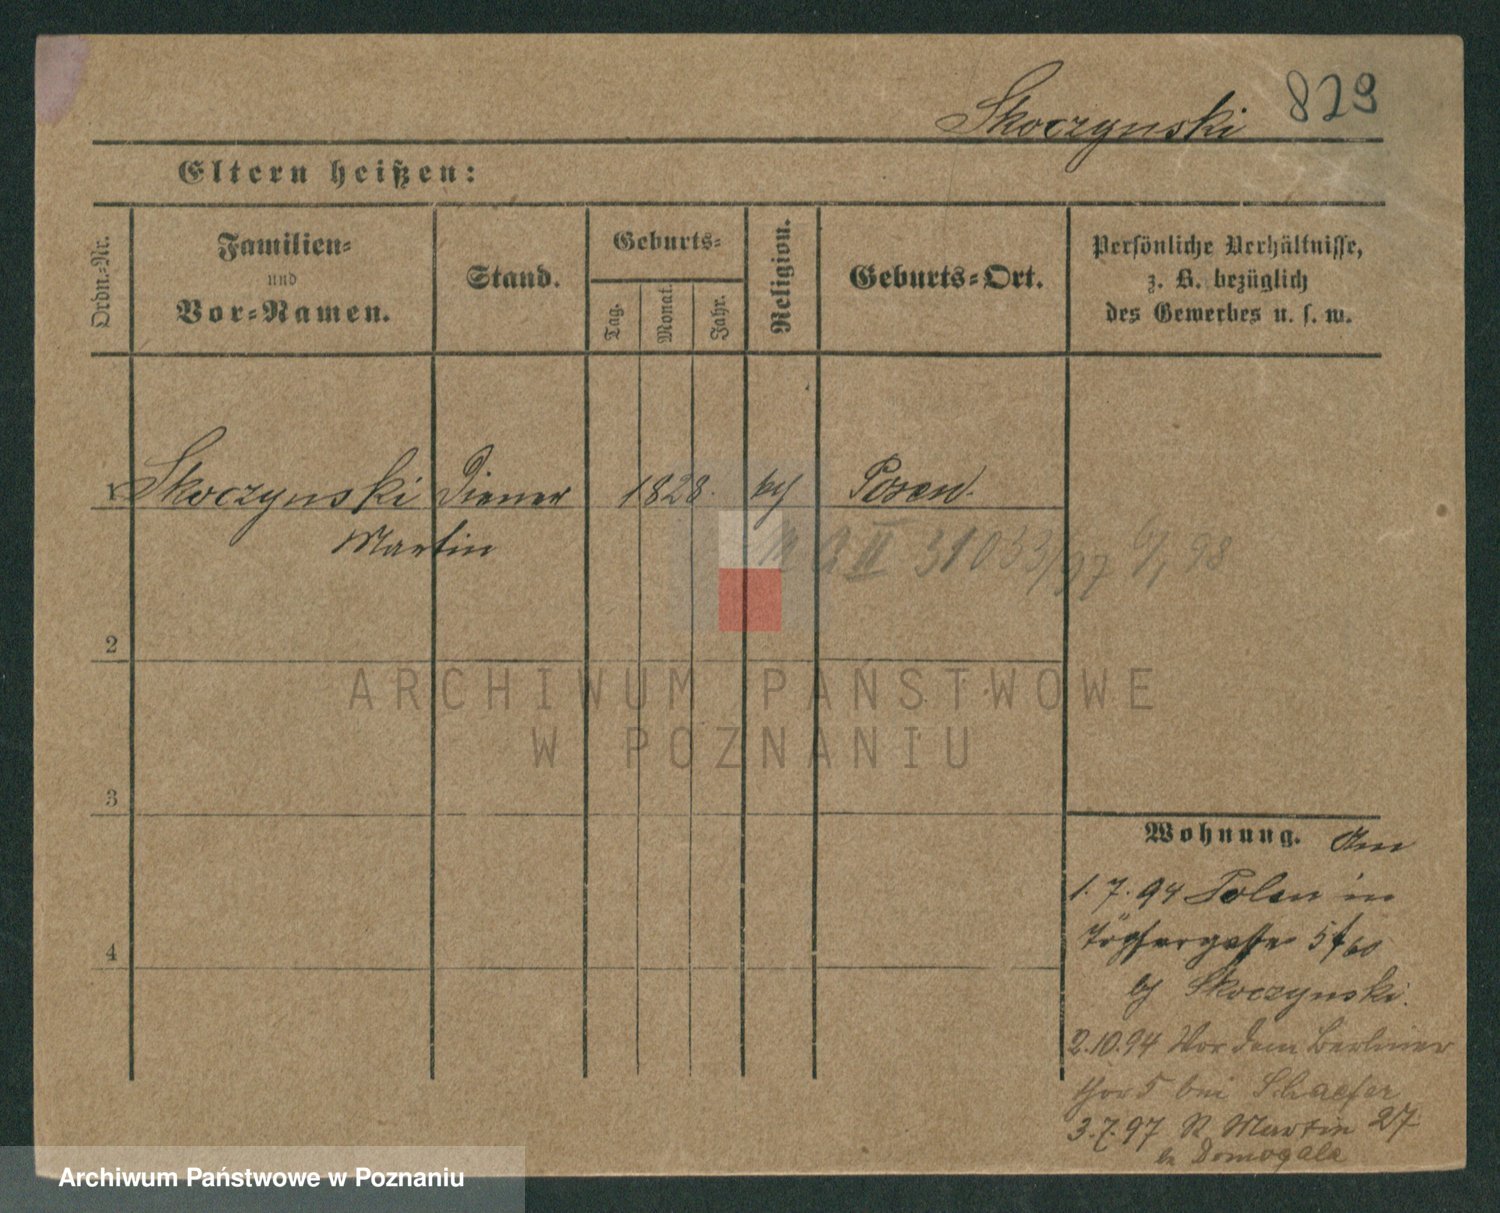 Skoczynski 829
Eltern heißen:
Ordn.-Nr.
Familien-
und
Vor-Namen.
Stand.
Geburts-
Tag.
Monat.
Jahr.
Religion.
Geburts-Ort.
Persönliche Verhältnisse,
z. B. bezüglich
des Gewerbes u. s. w.
1 Skoczynski Diener 1828. Posen.
Martin
II 31033/97 98
2
3
4
ARCHIWUM PAŃSTWOWE
W POZNANIU
Wohnung. Am
1.7.94 Polen in
Töpfergasse 5
Skoczynski.
2.10.94 Vor dem Berliner
Thor 5 bei Schaefer
3.7.97 St Martin 27
Domogala
Archiwum Państwowe w Poznaniu